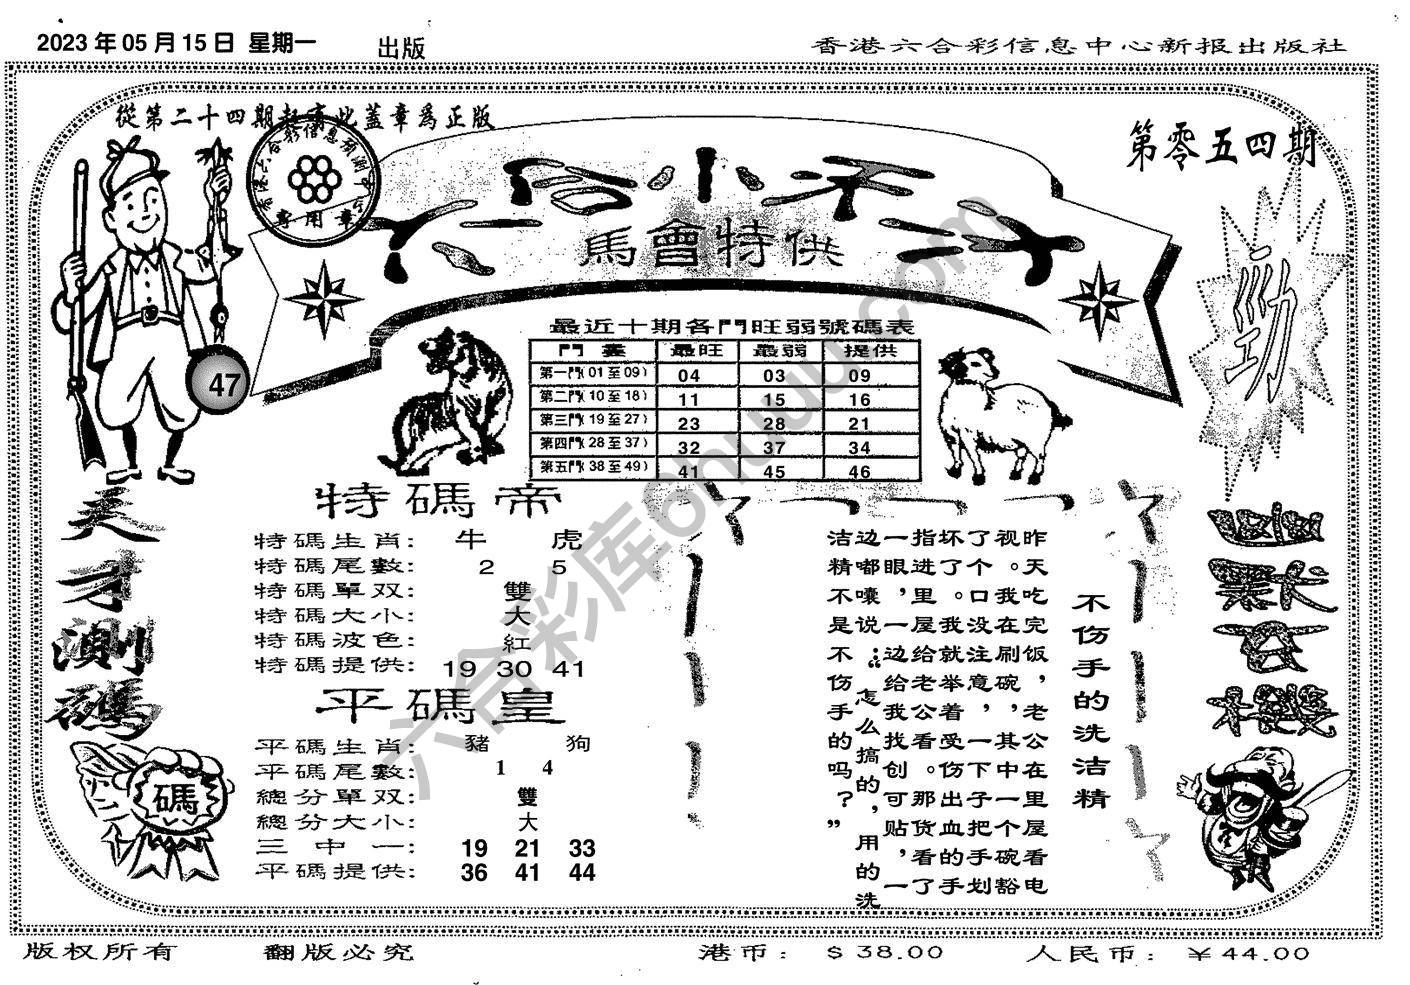 2023 年 05 月 15 日 星期一 出版
香港六合彩信息中心新报出版社
從第二十四期起有此蓋章爲正版
第零五四期
香港六合彩信息預測中心
專用章
六合小天才
馬會特供
勁
47
最近十期各門旺弱號碼表
門 最旺 最弱 提供
第一門( 01 至 09) 04 03 09
第二門( 10 至 18) 11 15 16
第三門( 19 至 27) 23 28 21
第四門( 28 至 37) 32 37 34
第五門( 38 至 49) 41 45 46
天才測碼
碼
特碼帝
特碼生肖: 牛 虎
特碼尾數: 2 5
特碼單双: 雙
特碼大小: 大
特碼波色: 紅
特碼提供: 19 30 41
平碼皇
平碼生肖: 豬 狗
平碼尾數: 1 4
總分單双: 雙
總分大小: 大
三中一: 19 21 33
平碼提供: 36 41 44
不伤手的洗洁精
昨天吃完饭，老公在里屋看电
视。我在刷碗，其中一个碗豁
了个口没注意，一下子把手划
坏了，我就举着受伤出血的手
指进里屋给老公看。那货看了
一眼，一边给我找创可贴，一
边嘟囔说：“怎么搞的，用的洗
洁精不是不伤手的吗？”
六合彩库6huuu.com
版权所有 翻版必究 港币: $ 38.00 人民币: ￥44.00